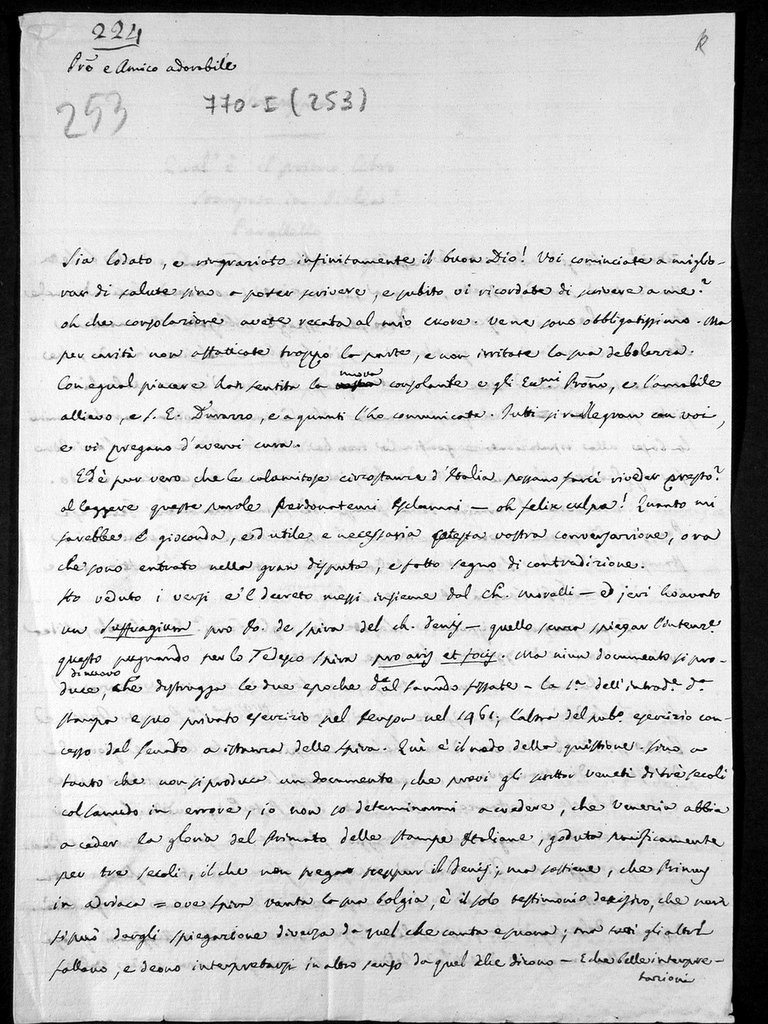 224
R
Prõe e Amico adorabile
253
770-I (253)
Sia lodato, e ringraziato infinitamente il buon Dio! Voi cominciate a miglio-
rar di salute sino a poter scrivere, e subito vi ricordate di scrivere a me?
oh che consolazione avete recata al mio cuore. Ve ne sono obbligatissimo. Ma
per carità non affaticate troppo la parte, e non irritate la sua debolezza.
Con egual piacere han sentita la nuova consolante e gli Emi Prõni, e l'amabile
allievo, e S. E. Durazzo, e a quanti l'ho comunicata. Tutti si rallegran con voi,
e vi pregano d'avervi cura.
Ed è pur vero che le calamitose circostanze d'Italia possano farci riveder presto?
al leggere queste parole perdonatemi esclamai — oh felix culpa! Quanto mi
sarebbe e gioconda, ed utile e necessaria cotesta vostra conversazione, ora
che sono entrato nella gran disputa, e fatto segno di contradizione.
Ho veduto i versi e'l decreto messi insieme dal Ch. Morelli — ed jeri ho avuto
un Suffragium pro Jo. de Spira del ch. Denis — quello senza spiegar l'intenze.
questo pugnando per lo Tedesco Spira pro aris et focis. Ma niun documento si pro-
duce, di nuovo che distrugga le due epoche dal Sanudo fissate — la 1a. dell'introde. da.
stampa e suo privato esercizio nel Jenson nel 1461; l'altra del pubo. esercizio con-
cesso dal Senato a istanza dello Spira. Quì è il nodo della quistione. Sino a
tanto che non si produca un documento, che provi gli scrittor veneti di trè secoli
col Sanudo in errore, io non so determinarmi a credere, che Venezia abbia
a ceder la gloria del Primato delle stampe Italiane, goduta pacificamente
per tre secoli, il che non nega neppur il Denis; ma sostiene, che Primus
in Adriaca = ove Spira vanta la sua bolgia, è il solo testimonio decisivo, che non
si può dargli spiegazione diversa da quel che canta e suona; ma tutti gli altri
fallano, e deono interpretarsi in altro senso da quel che dicono — E che belle interpre-
tazioni